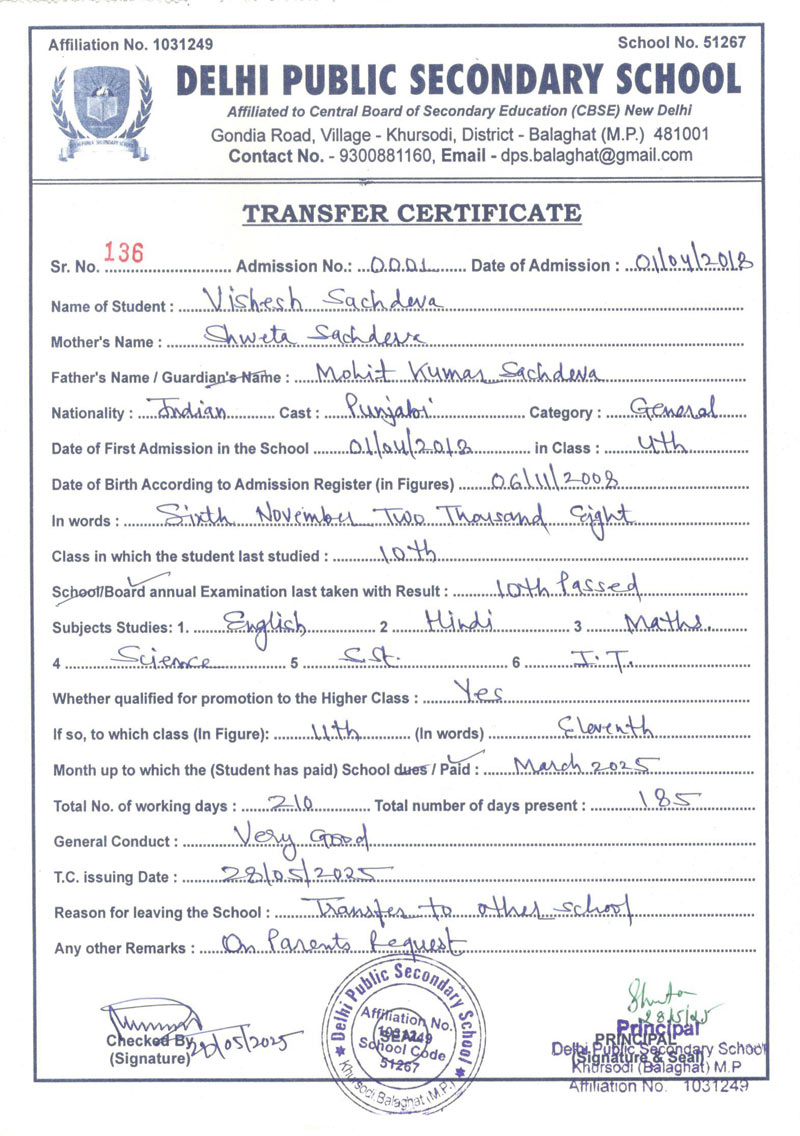 Affiliation No. 1031249 School No. 51267
DELHI PUBLIC SECONDARY SCHOOL
Affiliated to Central Board of Secondary Education (CBSE) New Delhi
Gondia Road, Village - Khursodi, District - Balaghat (M.P.) 481001
Contact No. - 9300881160, Email - dps.balaghat@gmail.com
DELHI PUBLIC SECONDARY SCHOOL
TRANSFER CERTIFICATE
Sr. No. 136 Admission No.: 0001 Date of Admission : 01/04/2018
Name of Student : Vishesh Sachdeva
Mother's Name : Shweta Sachdeva
Father's Name / Guardian's Name : Mohit Kumar Sachdeva
Nationality : Indian Cast : Punjabi Category : General
Date of First Admission in the School 01/04/2018 in Class : 4th
Date of Birth According to Admission Register (in Figures) 06/11/2008
In words : Sixth November Two Thousand Eight
Class in which the student last studied : 10th
School/Board annual Examination last taken with Result : 10th Passed
Subjects Studies: 1. English 2 Hindi 3 Maths.
4 Science 5 S.St. 6 I.T.
Whether qualified for promotion to the Higher Class : Yes
If so, to which class (In Figure): 11th (In words) Eleventh
Month up to which the (Student has paid) School dues / Paid : March 2025
Total No. of working days : 210 Total number of days present : 185
General Conduct : Very Good
T.C. issuing Date : 28/05/2025
Reason for leaving the School : Transfer to other school
Any other Remarks : On Parents Request
Checked By 28/05/2025
(Signature)
Delhi Public Secondary School
Affiliation No.
1031249
SEAL
School Code
51267
Khursodi Balaghat (M.P.)
28/5/25
Principal
PRINCIPAL
Delhi Public Secondary School
(Signature & Seal)
Khursodi (Balaghat) M.P
Affiliation No. 1031249